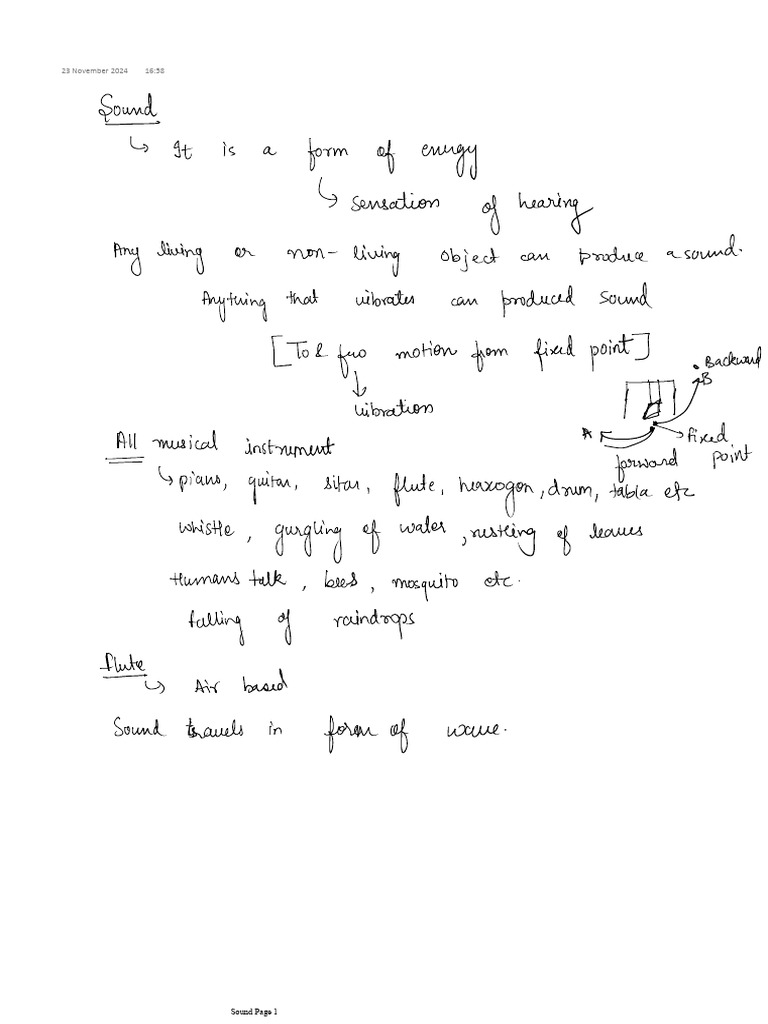 23 November 2024 16:58
Sound
↳ It is a form of energy
↳ sensation of hearing
Any living or non-living object can produce a sound.
Anything that vibrates can produced sound
[To & fro motion from fixed point]
↓
vibration
Backward
B
A
fixed point
forward
All musical instrument
↳ piano, guitar, sitar, flute, hexogon, drum, tabla etc
whistle, gurgling of water, rustling of leaves
Humans talk, bees, mosquito etc.
falling of raindrops
Flute
↳ Air based
Sound travels in form of wave.
Sound Page 1